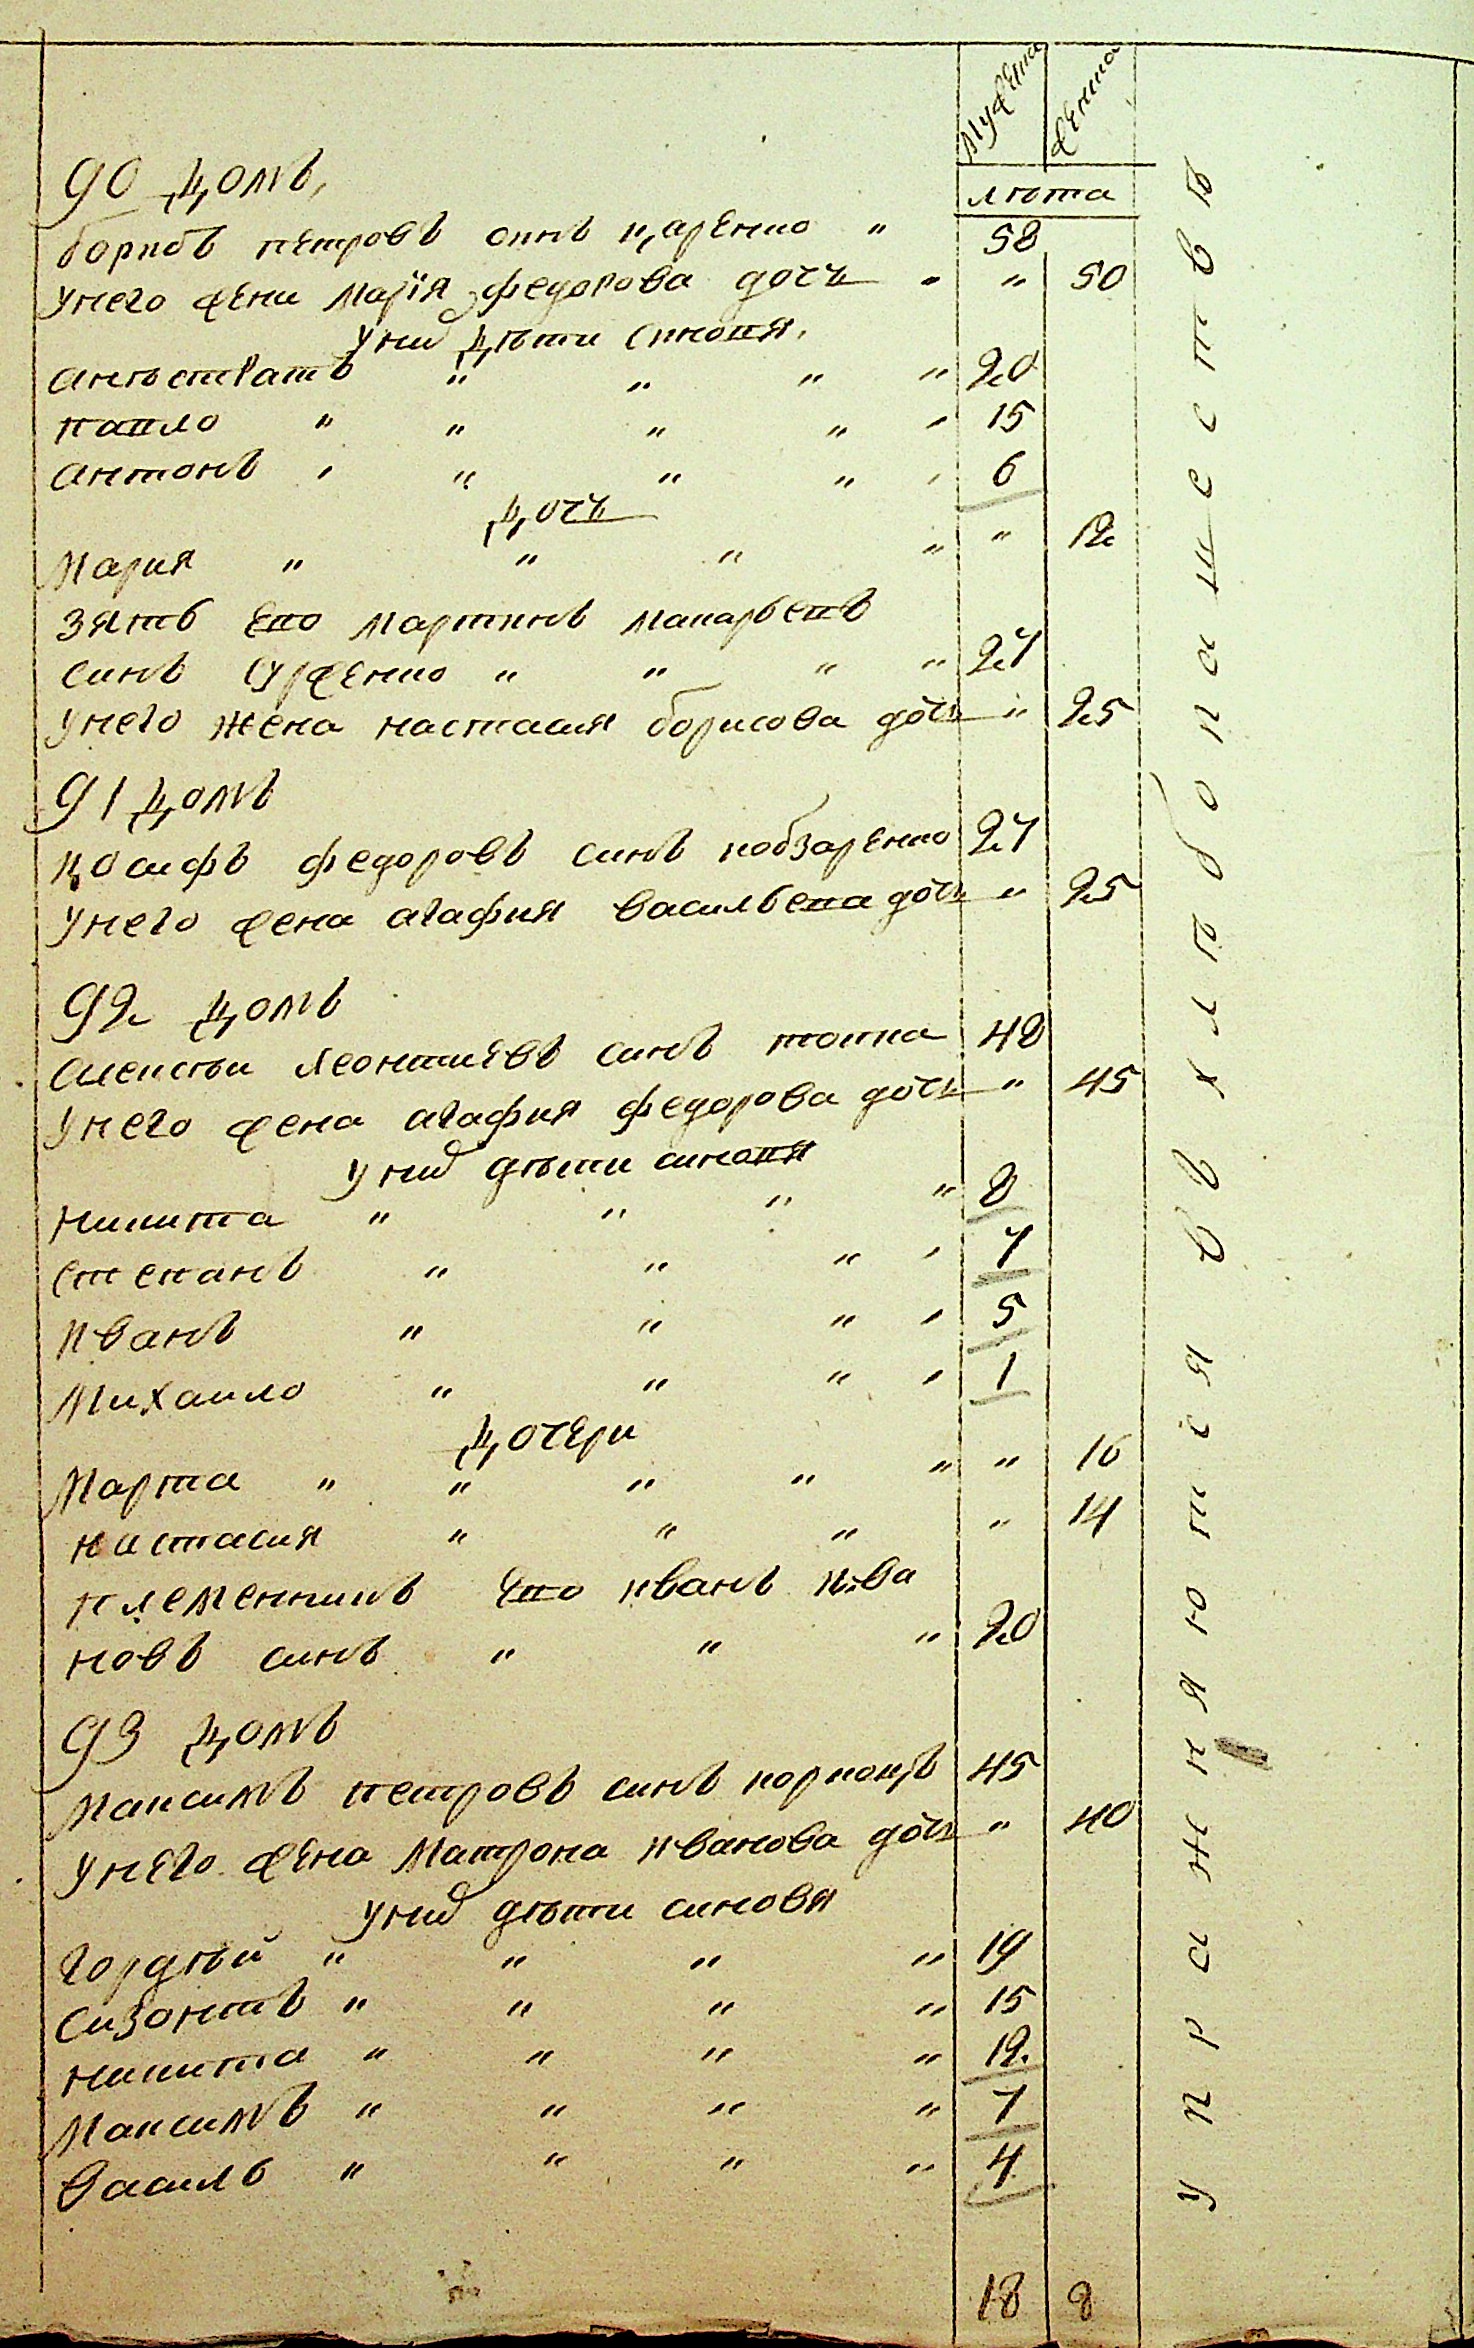 мужеска
женска
лѣта
90 домъ,
борисъ петровъ синъ царенко " 58
унего жени марїя федорова дочъ " " 50
уних дѣти синовя,
анѣстратъ " " " " 20
павло " " " " " 15
антонъ " " " " " 6
дочъ
Мария " " " " " 12
зять его мартинъ макарьевъ
синъ " " " " 27
унего жена настасия борисова дочъ " 25
91 домъ
иосифъ федоровъ синъ кобзаренко 27
унего жена агафия васильева дочъ " 25
92 домъ
алексѣи леонтиевъ синъ 48
унего жена агафия федорова дочъ " 45
уних дѣти синовя
никита " " " " 8
степанъ " " " " 7
иванъ " " " " 5
Михаило " " " " 1
дочери
Марта " " " " " " 16
настасия " " " " 14
племенникъ его иванъ ива
новъ синъ " " " 20
93 домъ
Максимъ петровъ синъ корконцъ 45
унего жена Матрона иванова дочъ " 40
уних дѣти синовя
гордѣй " " " " 19
сизонтъ " " " " 15
никита " " " " 12.
Максимъ " " " " 7
василь " " " " 4
18 8
упражняютися въ хлѣбопашествѣ